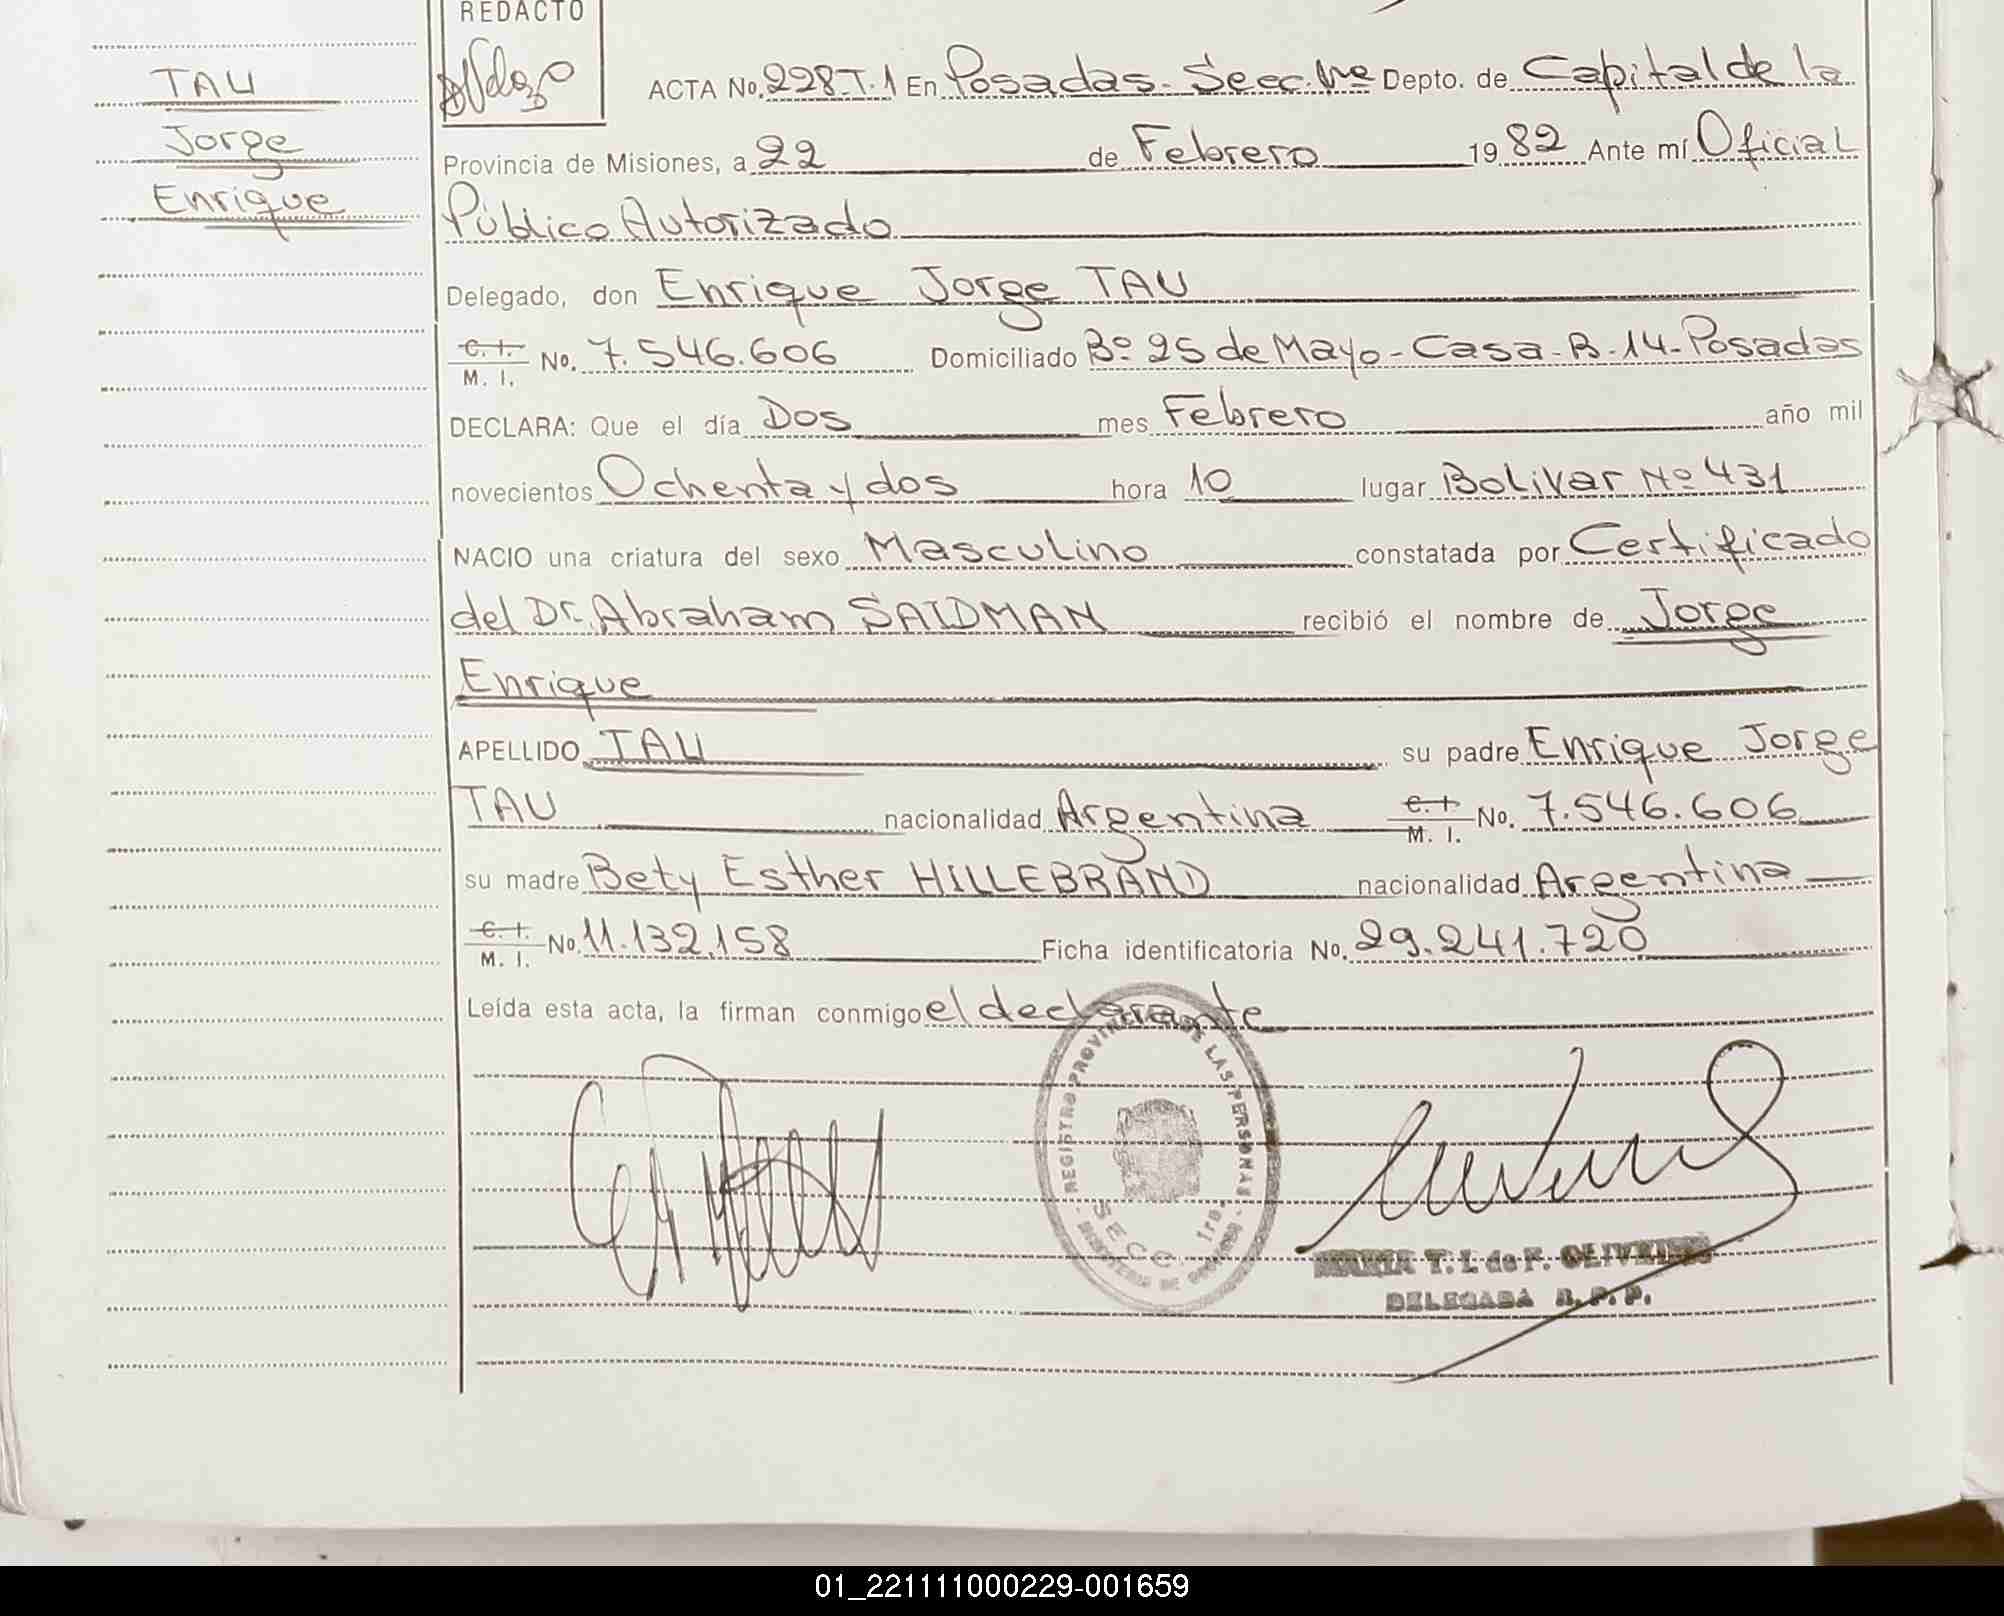 REDACTO
TAU
Jorge
Enrique
ACTA No. 228-T.1 En Posadas-Secc. 1ra Depto. de Capital de la
Provincia de Misiones, a 22 de Febrero 1982 Ante mí Oficial
Público Autorizado
Delegado, don Enrique Jorge TAU
C. I. M. I. No. 7.546.606 Domiciliado Bº 25 de Mayo-Casa-B-14-Posadas
DECLARA: Que el día Dos mes Febrero año mil
novecientos Ochenta y dos hora 10 lugar Bolivar Nº 431
NACIO una criatura del sexo Masculino constatada por Certificado
del Dr. Abraham SAIDMAN recibió el nombre de Jorge
Enrique
APELLIDO TAU su padre Enrique Jorge
TAU nacionalidad Argentina C. I. M. I. No. 7.546.606
su madre Bety Esther HILLEBRAND nacionalidad Argentina
C. I. M. I. No. 11.132.158 Ficha identificatoria No. 29.241.720
Leída esta acta, la firman conmigo el declarante
REGISTRO PROVINCIAL DE LAS PERSONAS
SECC. 1ra.
MARIA T. I. de F. OLIVEIRA
DELEGADA R. P. P.
01_221111000229-001659